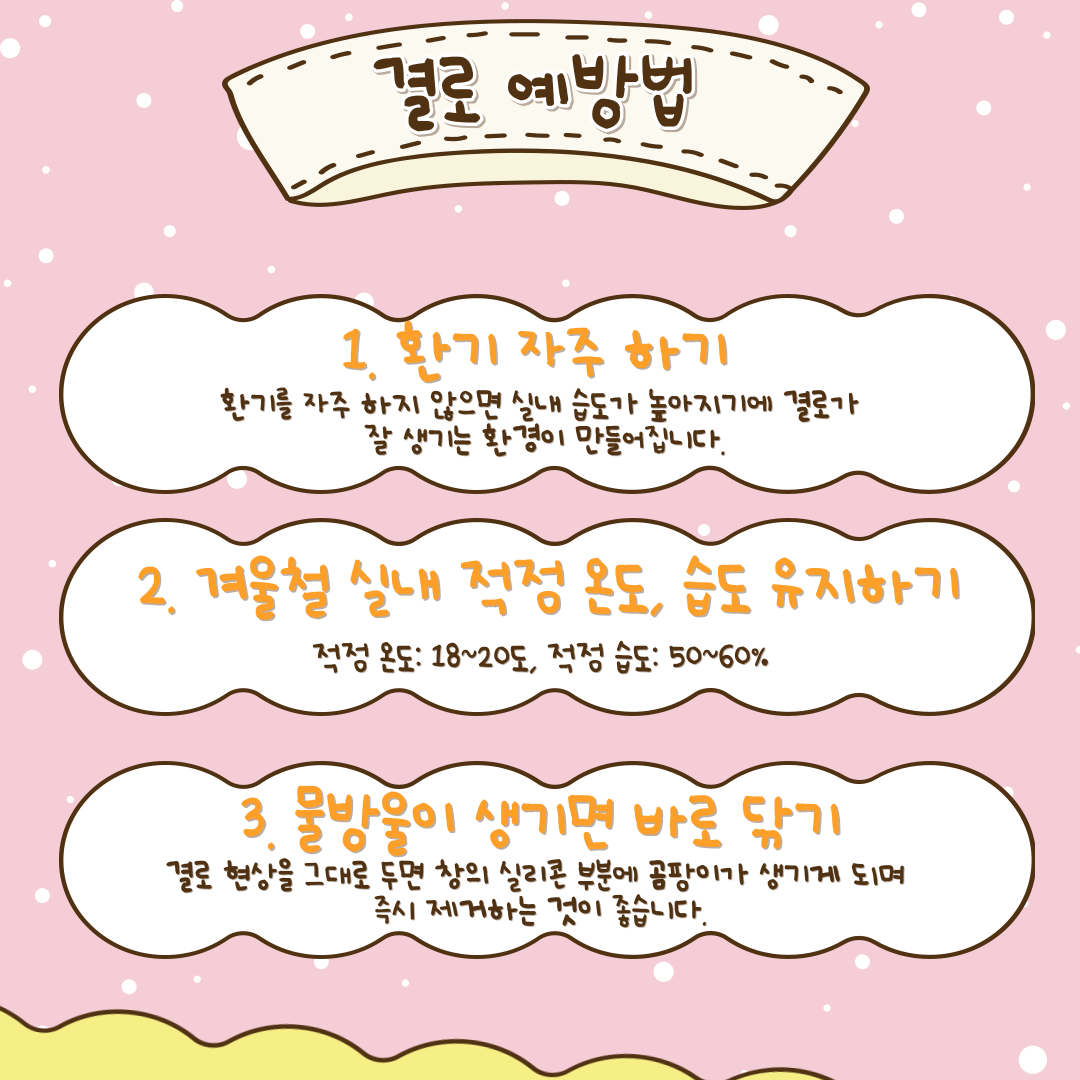 결로 예방법
1. 환기 자주 하기
환기를 자주 하지 않으면 실내 습도가 높아지기에 결로가
잘 생기는 환경이 만들어집니다.
2. 겨울철 실내 적정 온도, 습도 유지하기
적정 온도: 18~20도, 적정 습도: 50~60%
3. 물방울이 생기면 바로 닦기
결로 현상을 그대로 두면 창의 실리콘 부분에 곰팡이가 생기게 되며
즉시 제거하는 것이 좋습니다.